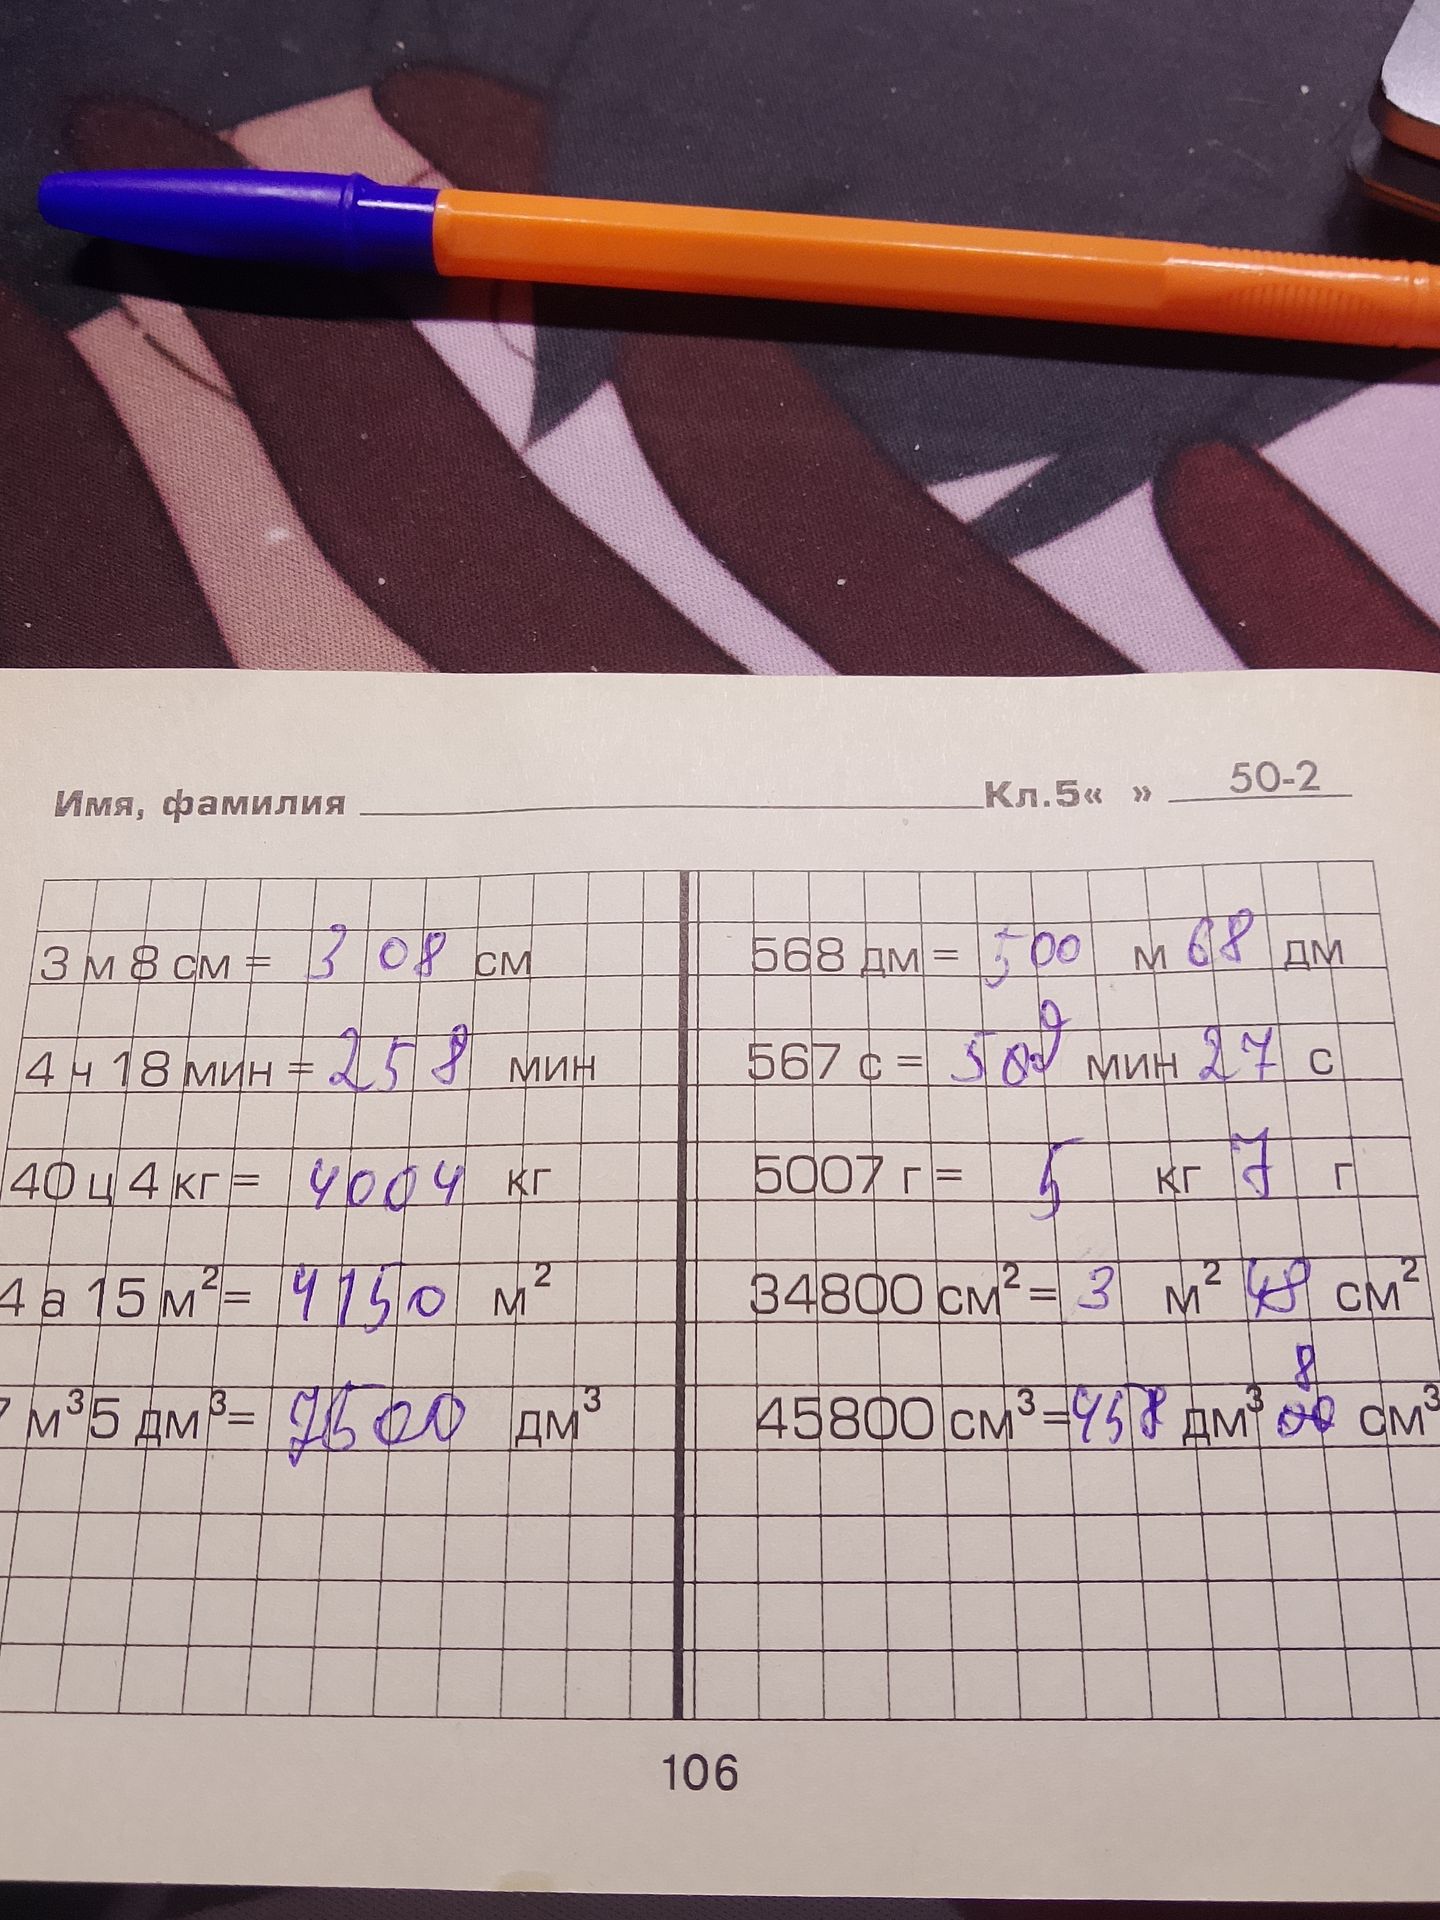 Имя, фамилия Кл.5« » 50-2
3 м 8 см = 308 см
4 ч 18 мин = 258 мин
40 ц 4 кг = 4004 кг
4 а 15 м²= 4150 м²
7 м³ 5 дм³= 7500 дм³
568 дм = 500 м 68 дм
567 с = 509 мин 27 с
5007 г = 5 кг 7 г
34800 см²= 3 м² 48 см²
45800 см³=458 дм³ 8 см³
106